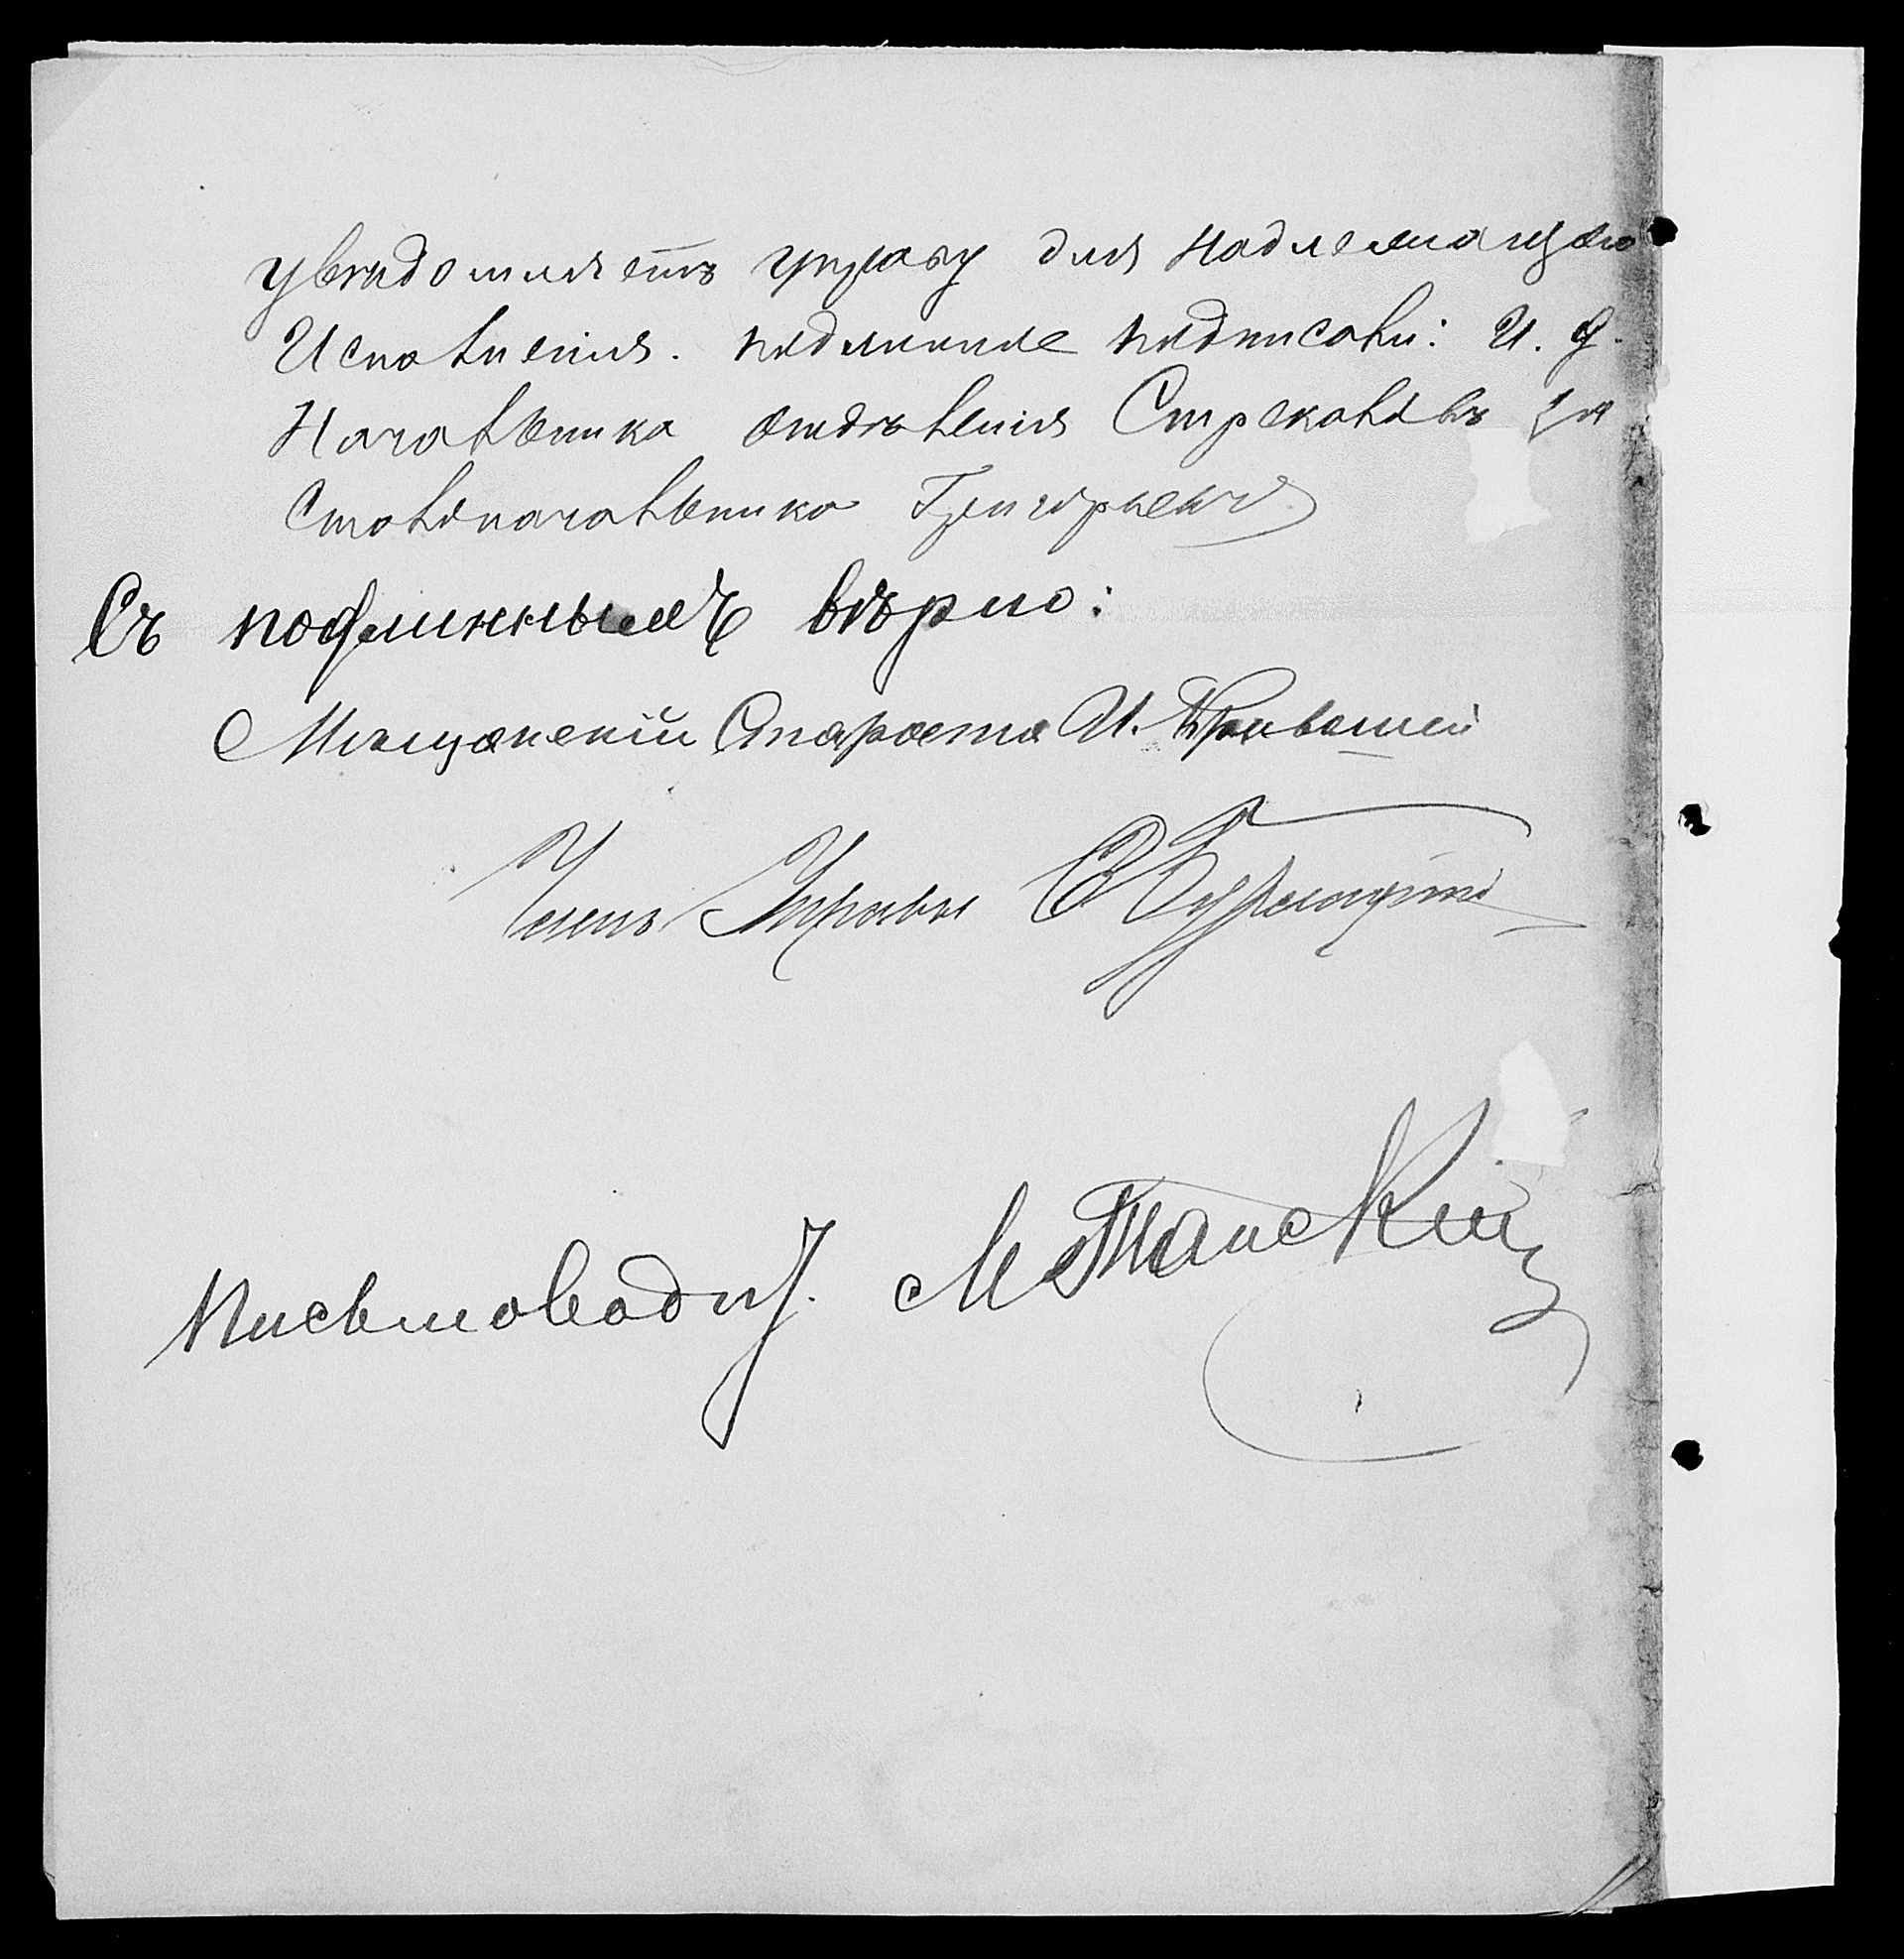 увѣдомляетъ управу для надлежащаго
Исполненія. подлинное подписали: И. д.
Начальника отдѣленія Стрекаловъ за
Столоначальника Григоревичъ
Съ подлиннымъ вѣрно:
Мѣщанскій Староста И. Кривошей
Членъ Управы
Письмовод. М Манскій